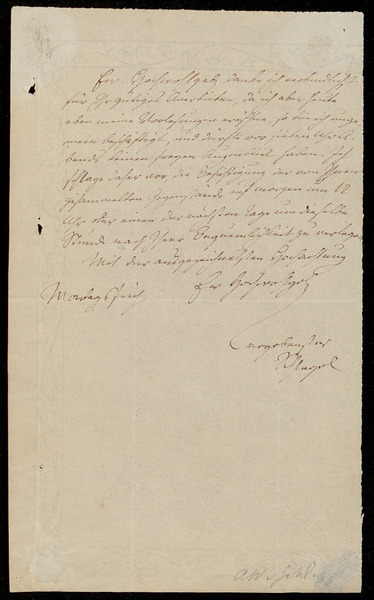 Ew. Hochwohlgeb. danke ich verbindlichst
für Ihr gütiges Anerbieten, da ich aber heute
eben meine Vorlesungen eröffne, so bin ich unge-
mein beschäftigt, und dürfte vor sieben Uhr A-
bends keinen freyen Augenblick haben. Ich
schlage daher vor die Besichtigung der von Ihnen
gesammelten Gegenstände auf morgen um 12
Uhr oder einen der nächsten Tage um dieselbe
Stunde nach Ihrer Bequemlichkeit zu verlegen.
Mit der ausgezeichnetsten Hochachtung
Ew Hochwohlgeb
Montags früh
ergebenster
Schlegel
AW v Schl.